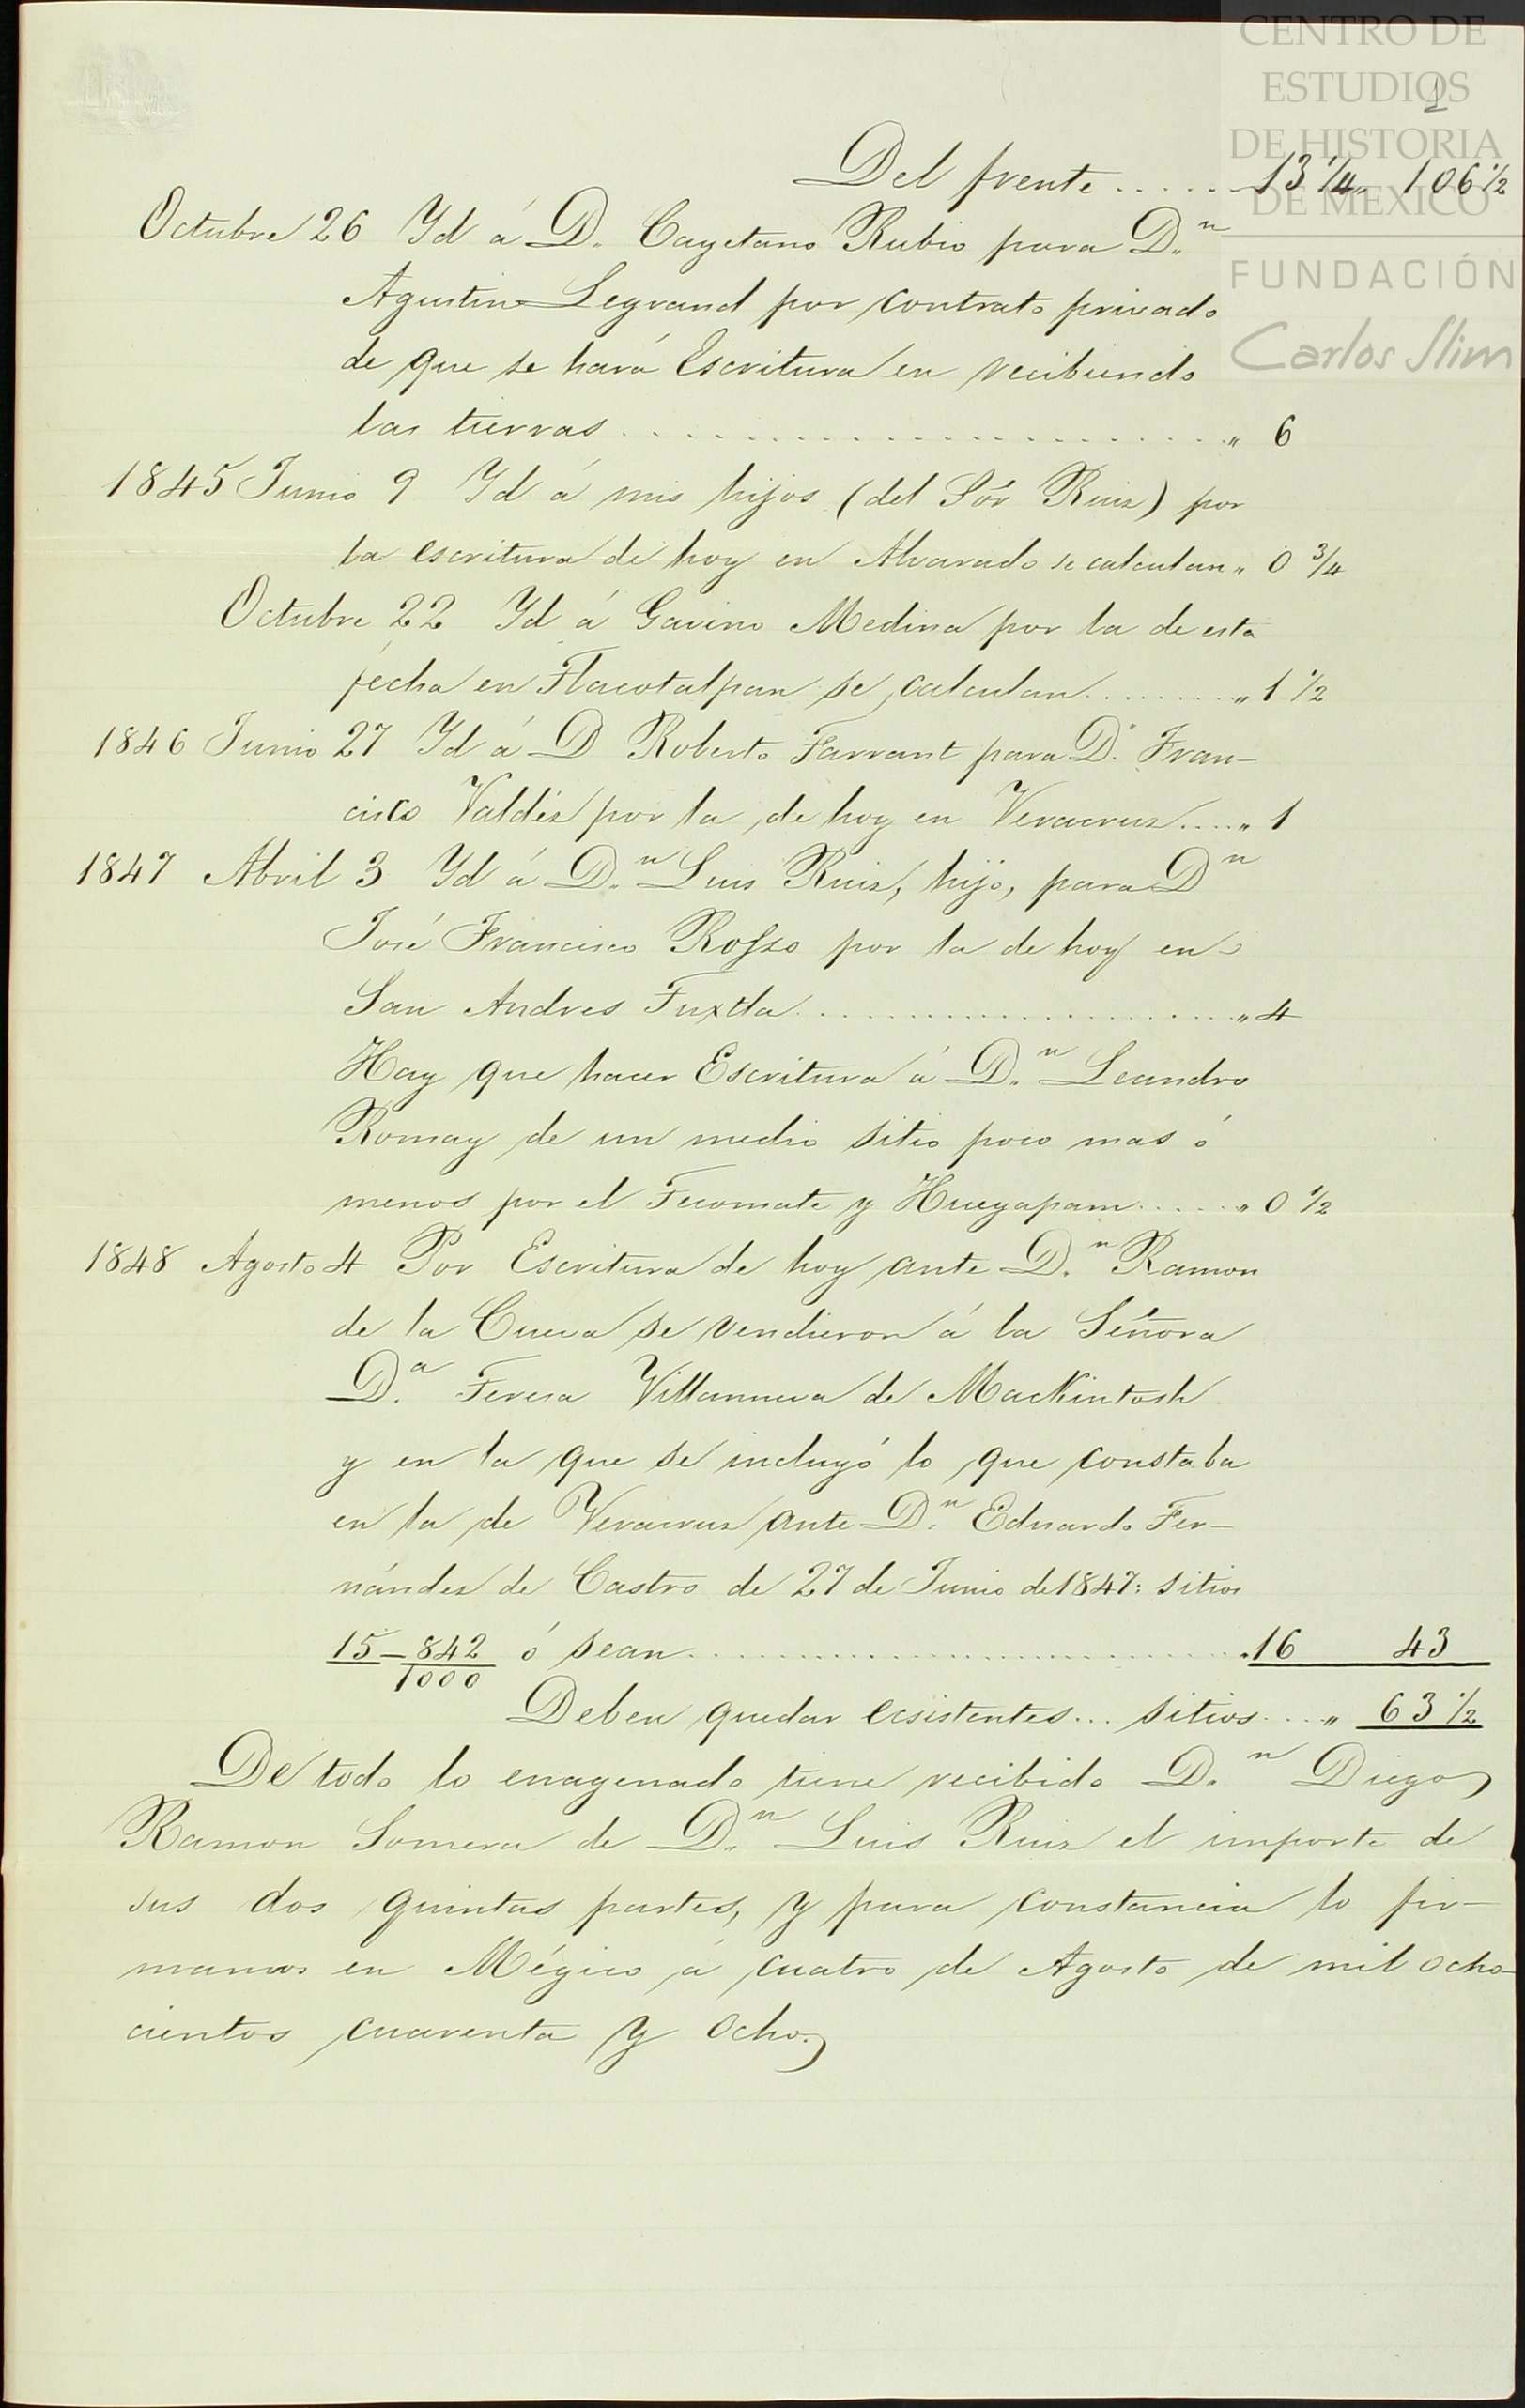 CENTRO DE
ESTUDIOS
DE HISTORIA
DE MEXICO
FUNDACIÓN
Carlos Slim
Del frente ...... 13 1/4 „ 106 1/2
Octubre 26 Yd á D. Cayetano Rubio para D.n
Agustin Legrand por contrato privado
de que se hará Escritura en recibiendo
las tierras ...................... „ 6
1845 Junio 9 Yd á mis hijos (del Sór Ruiz) por
la escritura de hoy en Alvarado se calculan „ 0 3/4
Octubre 22 Yd á Gavino Medina por la de esta
fecha en Tlacotalpan se calculan ........ „ 1 1/2
1846 Junio 27 Yd á D Roberto Farrant para D. Fran-
cisco Valdés por la de hoy en Veracruz .... „ 1
1847 Abril 3 Yd á D.n Luis Ruiz, hijo, para Dn
José Francisco Rosso por la de hoy en
San Andres Tuxtla .................. „ 4
Hay que hacer Escritura á D.n Leandro
Romay de un medio sitio poco mas ó
menos por el Tecomate y Hueyapam ..... „ 0 1/2
1848 Agosto 4 Por Escritura de hoy ante D.n Ramon
de la Cueva se vendieron á la Señora
D.a Teresa Villanueva de MacKintosh
y en la que se incluyó lo que constaba
en la de Veracruz ante D.n Eduardo Fer-
nández de Castro de 27 de Junio de 1847: sitios
15 - 842/1000 ó sean .................... „ 16 43
Deben quedar ecsistentes... sitios .... „ 63 1/2
De todo lo enagenado tiene recibido D.n Diego
Ramon Somera de D.n Luis Ruiz el importe de
sus dos quintas partes, y para constancia lo fir-
mamos en Mégico á cuatro de Agosto de mil ocho-
cientos cuarenta y ocho.